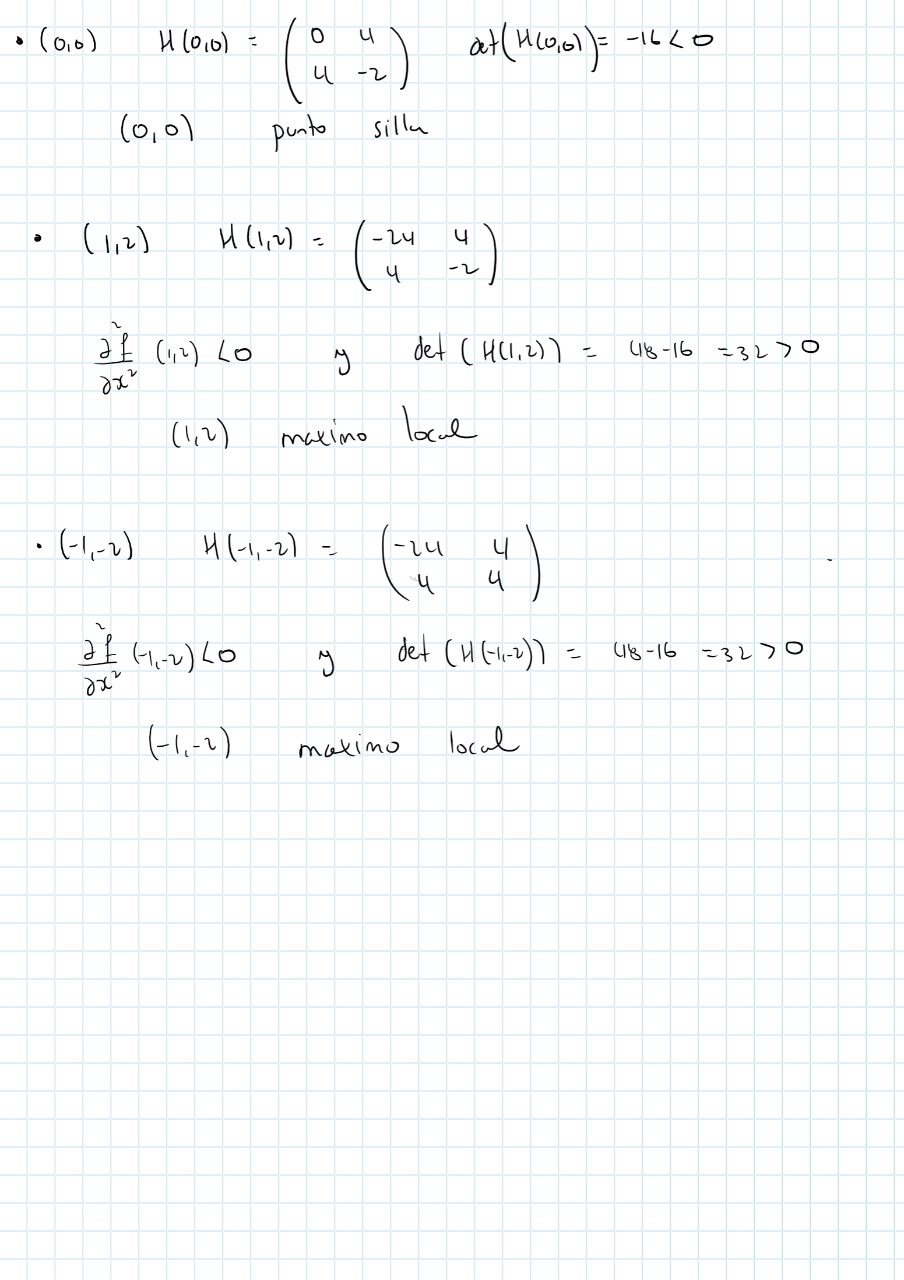 • (0,0) H(0,0) = ( 0 4 ; 4 -2 ) det(H(0,0)) = -16 < 0
(0,0) punto silla
• (1,2) H(1,2) = ( -24 4 ; 4 -2 )
∂²f/∂x² (1,2) < 0 y det(H(1,2)) = 48-16 = 32 > 0
(1,2) maximo local
• (-1,-2) H(-1,-2) = ( -24 4 ; 4 4 )
∂²f/∂x² (-1,-2) < 0 y det(H(-1,-2)) = 48-16 = 32 > 0
(-1,-2) maximo local